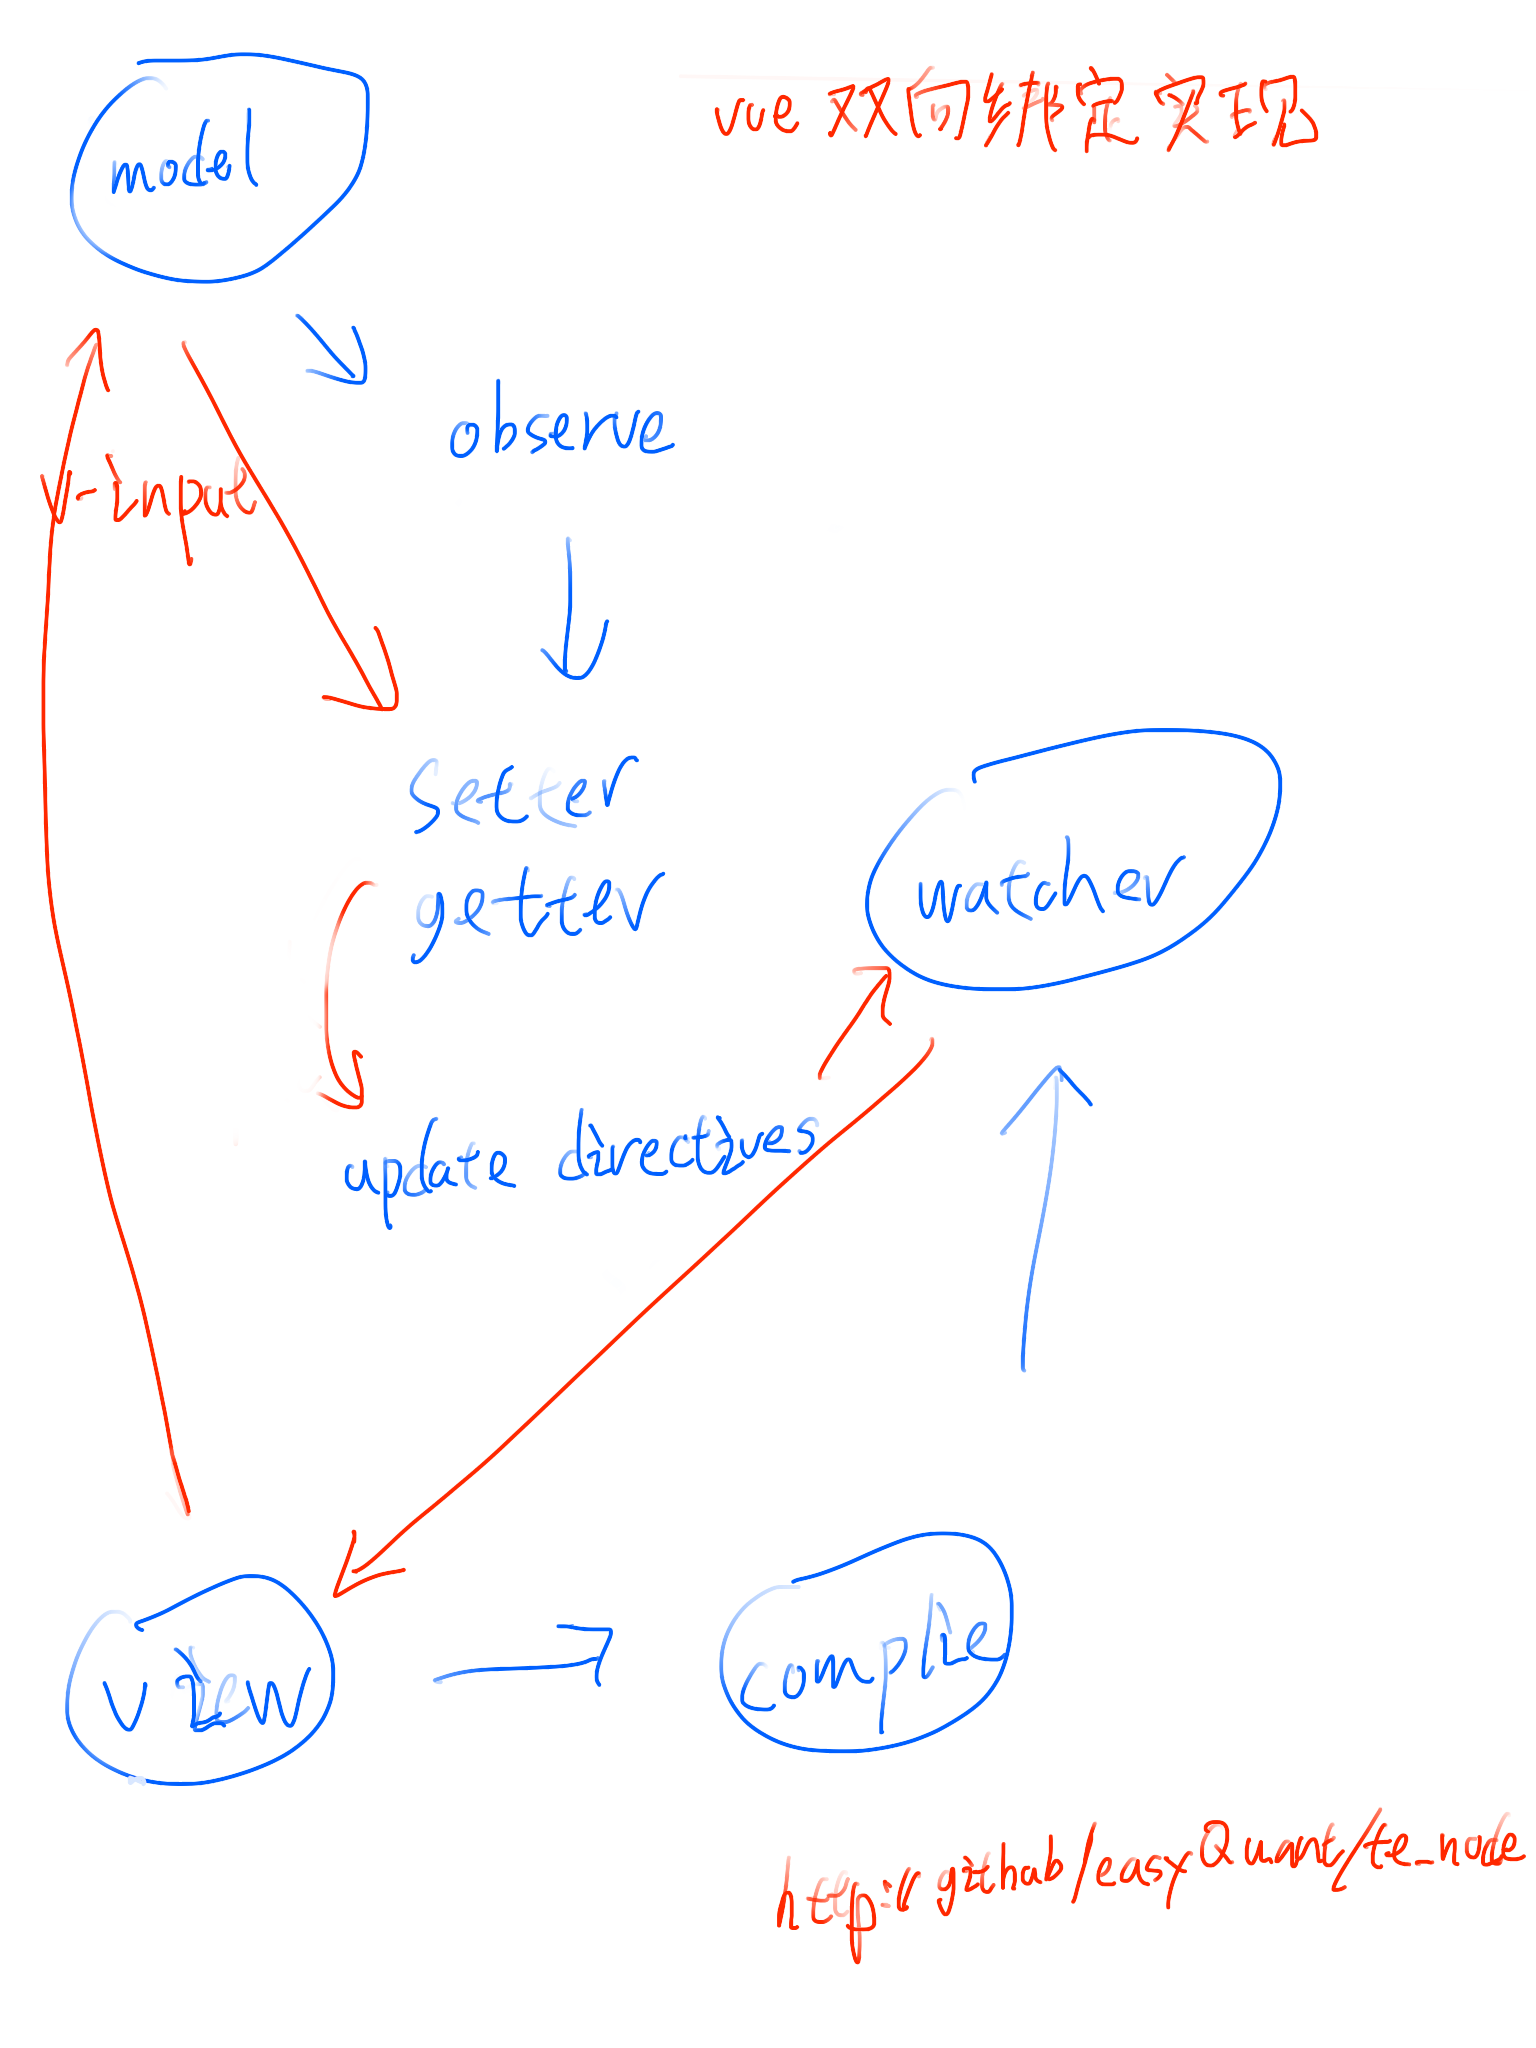 vue 双向绑定实现
model
observe
v-input
setter
getter
watcher
update directives
view
complie
http://github/easyQuant/te_node